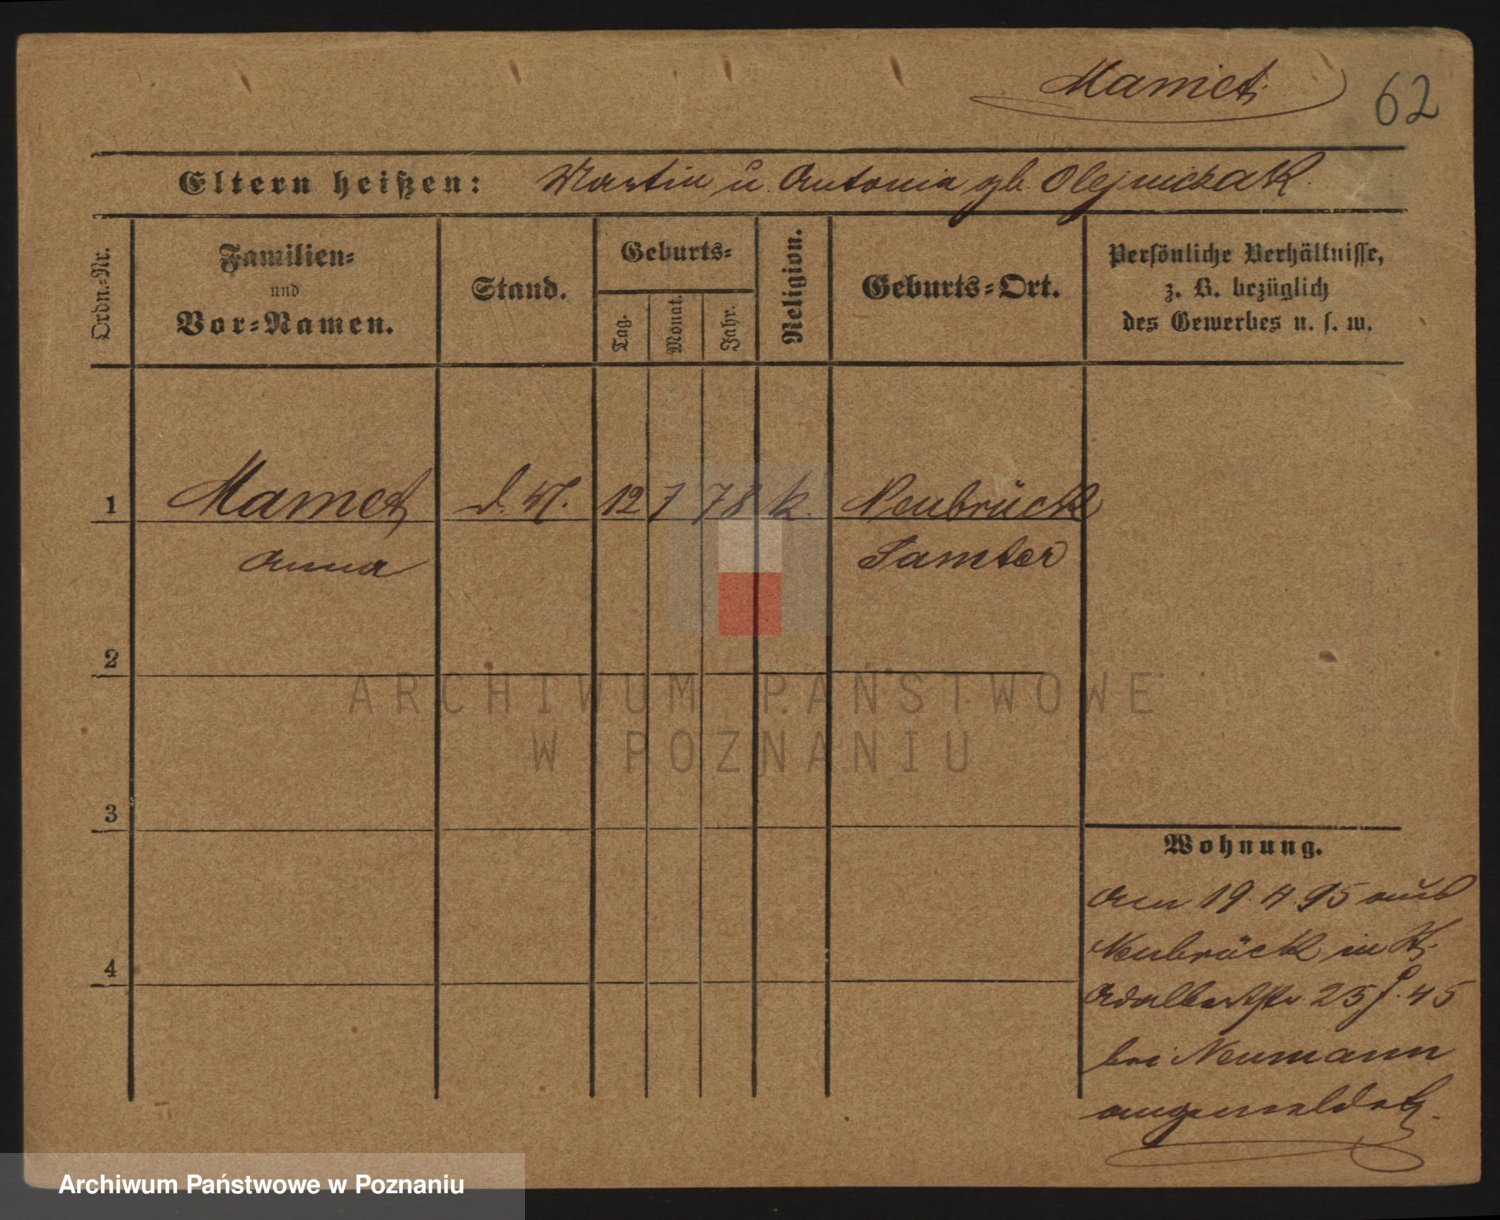 Mamet
62
Eltern heißen: Martin u. Antonia gb. Olejniczak.
Ordn.-Nr.
Familien-
und
Vor-Namen.
Stand.
Geburts-
Tag.
Monat.
Jahr.
Religion.
Geburts-Ort.
Persönliche Verhältnisse,
z. B. bezüglich
des Gewerbes u. s. w.
1 Mamet 12 7 78 k. Neubrück
Anna Samter
2
ARCHIWUM PAŃSTWOWE
W POZNANIU
3
Wohnung.
Am 19.4.95 aus
Neubrück in
4
Adalbertstr. 25 45
bei Neumann
angemeldet.
Archiwum Państwowe w Poznaniu